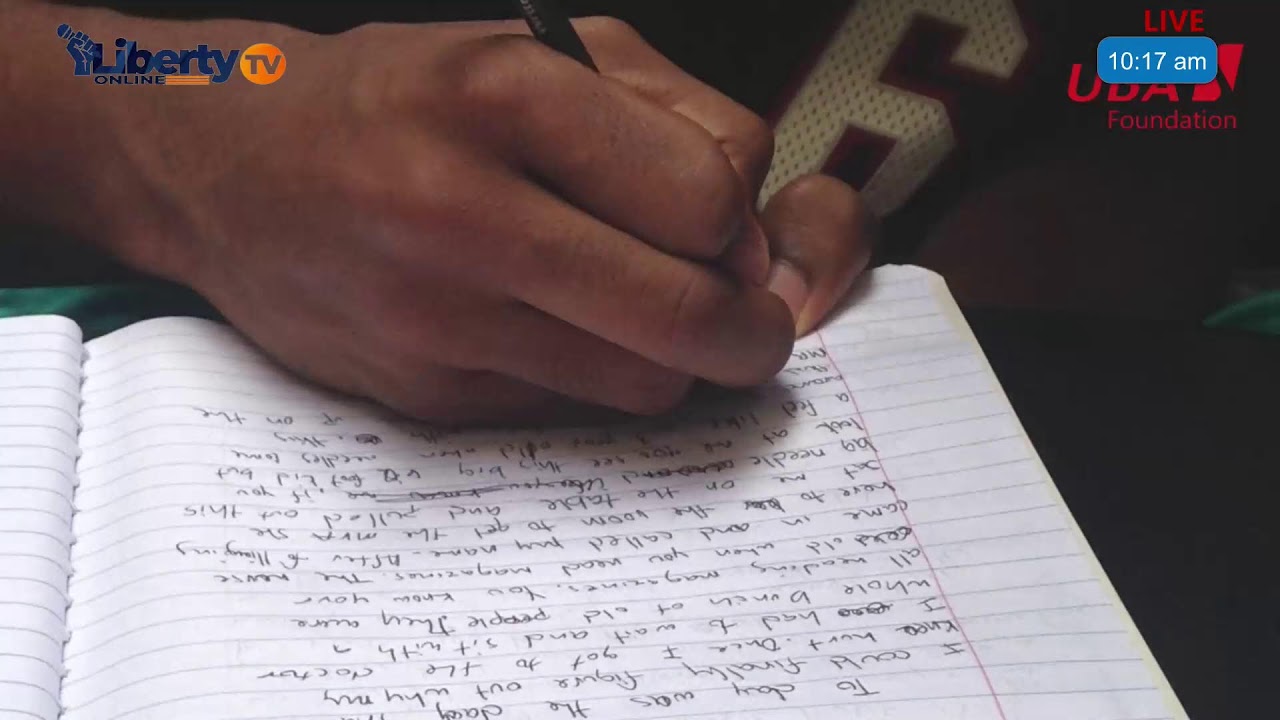 Liberty TV
ONLINE
LIVE
10:17 am
UBA
Foundation
To day was the day
I could finally figure out why my
knee hurt. Once I got to the doctor
I had to wait and sit with a
whole bunch of old people they were
all reading magazines. You know your
old when you read magazines. The nurse
came in and called my name. After following
here to the room to get the she
set me on the table and pulled out this
big needle if you
look at me you see this big kid but
a 3 year old when needles come
thing. on the